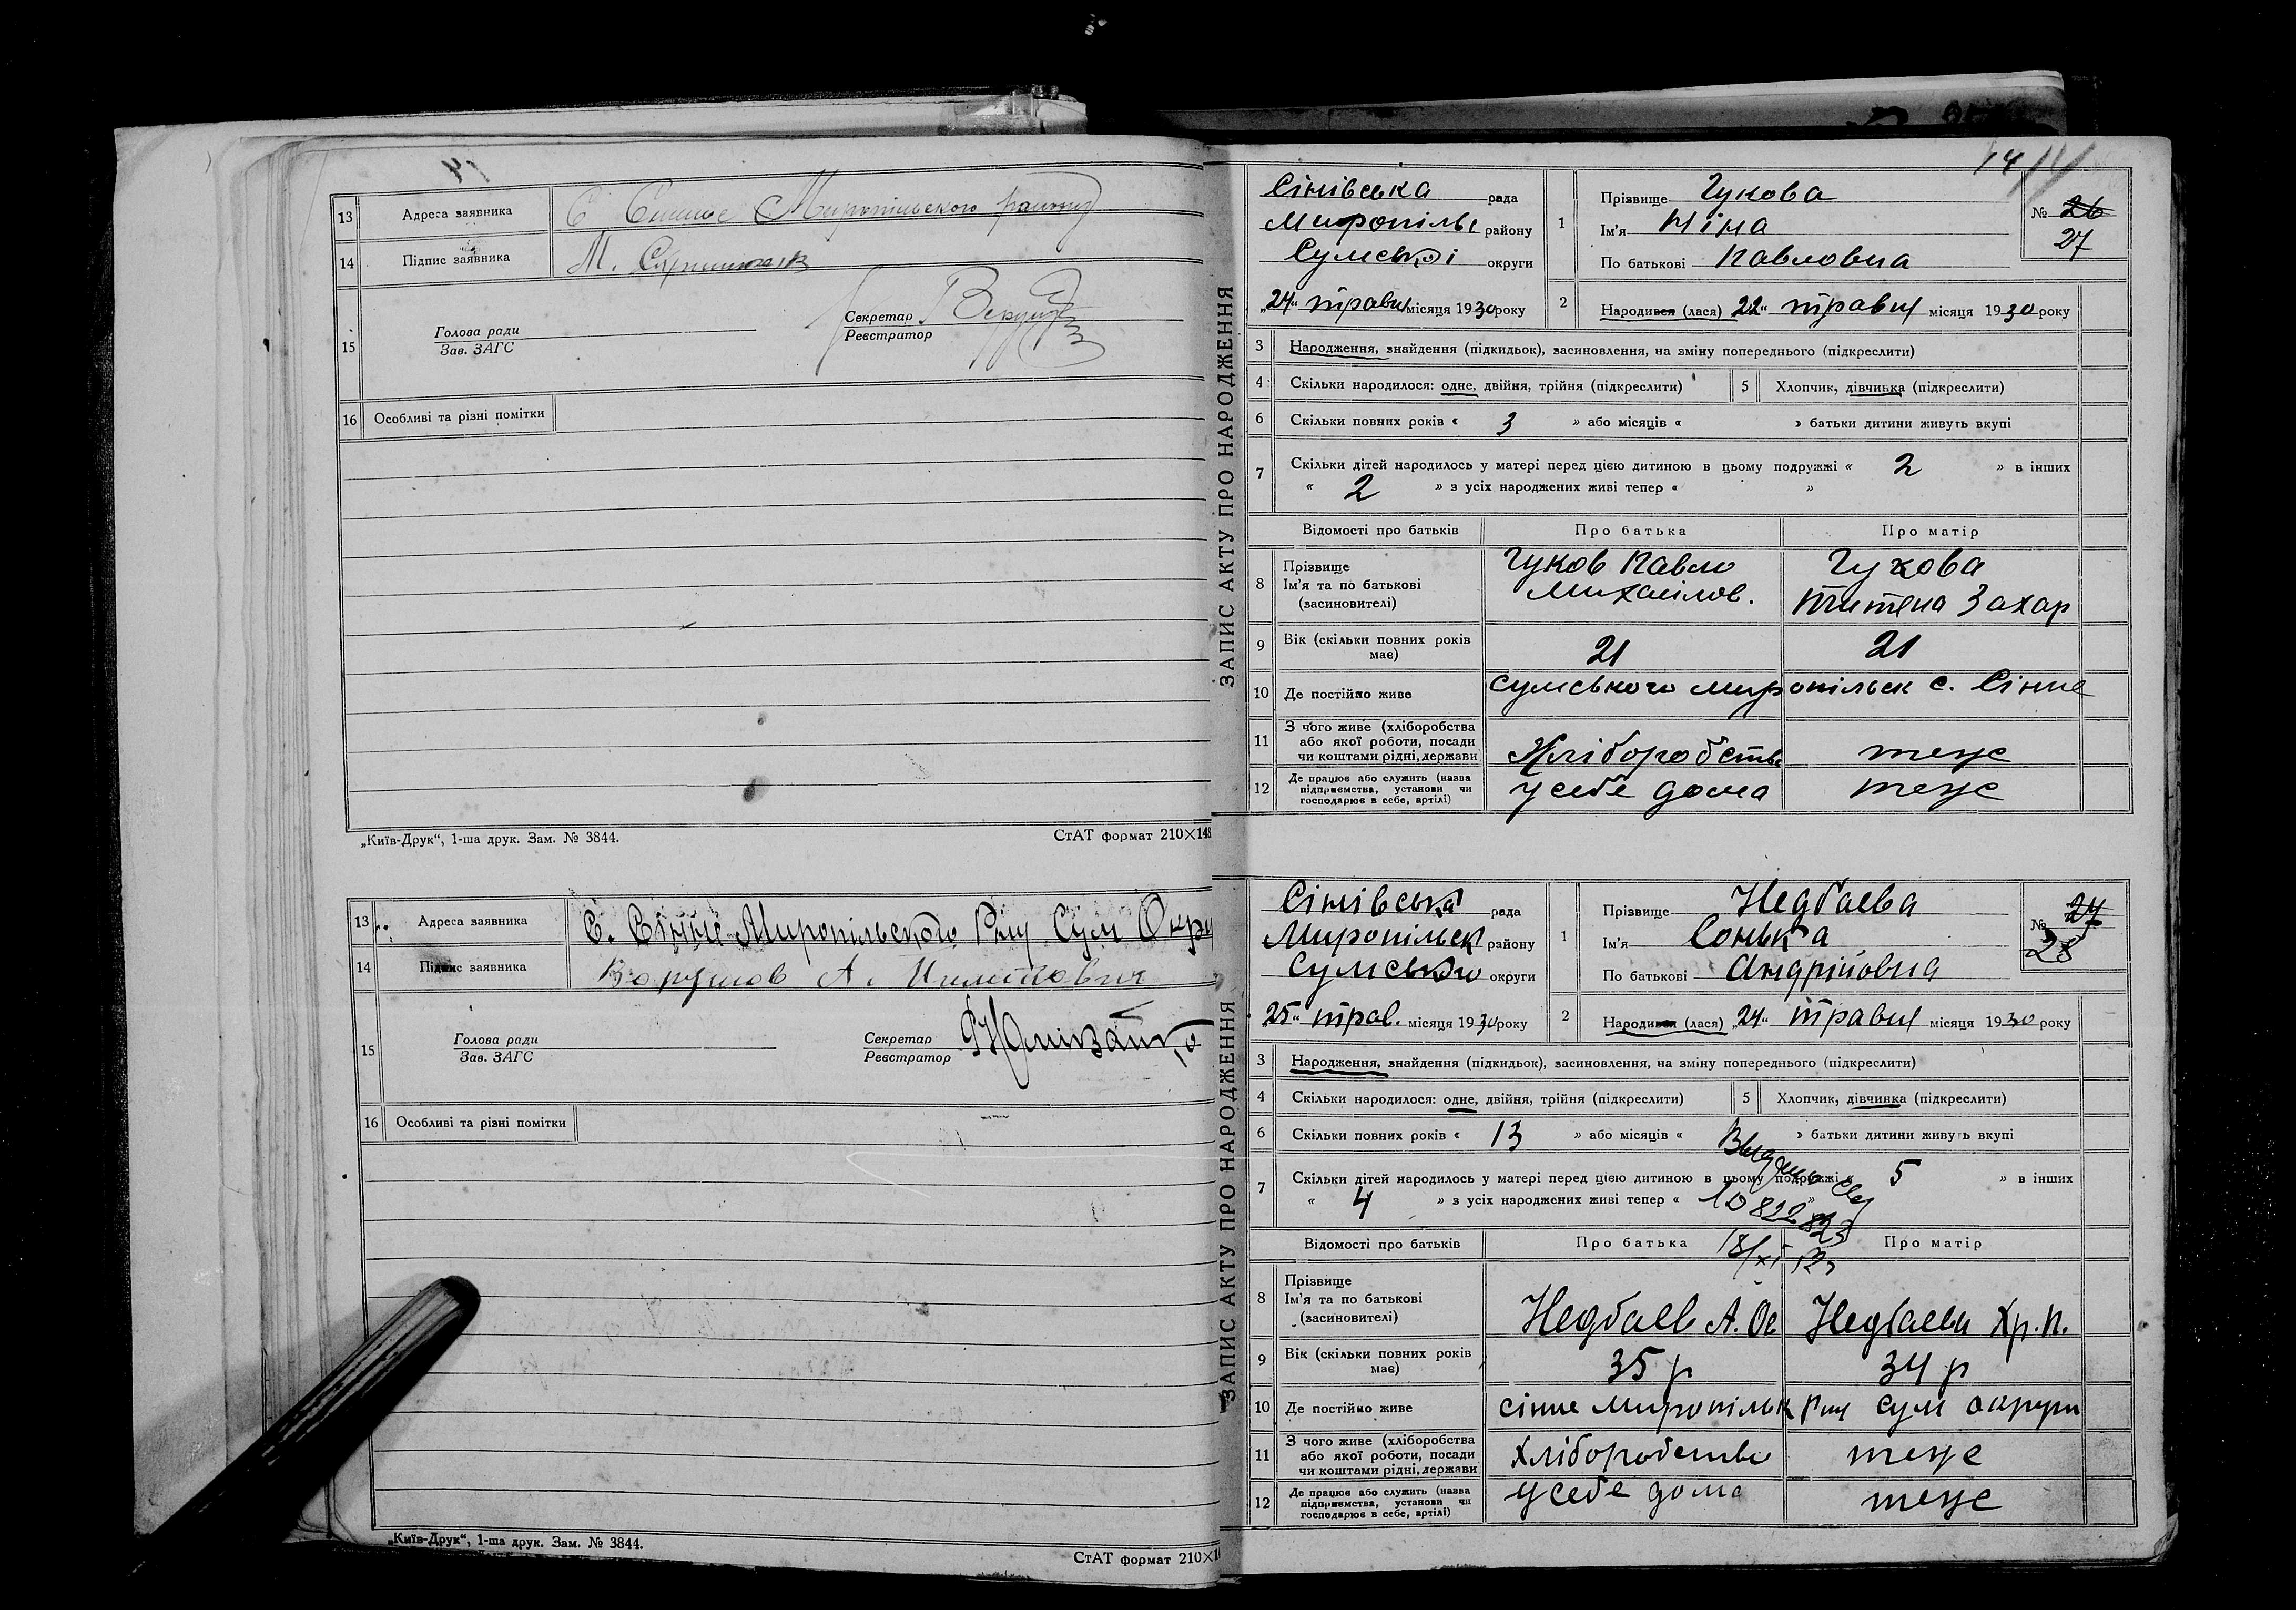 13 Адреса заявника С Синнє Миропільского району
14 Підпис заявника М.
15 Голова ради
Зав. ЗАГС
Секретар
Реєстратор
16 Особливі та різні помітки
„Київ-Друк“, 1-ша друк. Зам. № 3844.
СтАТ формат 210×148
13 Адреса заявника С. Сінне Миропільського Рну Сум Окру
14 Підпис заявника А.
15 Голова ради
Зав. ЗАГС
Секретар
Реєстратор
16 Особливі та різні помітки
„Київ-Друк“, 1-ша друк. Зам. № 3844.
СтАТ формат 210×14
14
ЗАПИС АКТУ ПРО НАРОДЖЕННЯ
Сінівська рада
Миропільс району
Сумської округи
„24“ травня місяця 1930 року
1 Прізвище Гукова
Ім'я Ніна
По батькові Павловна
№ 26
27
2 Народився (лася) 22“ травня місяця 1930 року
3 Народження, знайдення (підкидьок), засиновлення, на зміну попереднього (підкреслити)
4 Скільки народилося: одне, двійня, трійня (підкреслити) 5 Хлопчик, дівчинка (підкреслити)
6 Скільки повних років « 3 » або місяців « » батьки дитини живуть вкупі
7 Скільки дітей народилось у матері перед цією дитиною в цьому подружжі « 2 » в інших
« 2 » з усіх народжених живі тепер « »
Відомості про батьків Про батька Про матір
8 Прізвище
Ім'я та по батькові
(засиновителі)
Гуков Павло
Михаілов.
Гукова
Титяна Захар
9 Вік (скільки повних років має) 21 21
10 Де постійно живе Сумського миропільск с. Сінне
11 З чого живе (хліборобства
або якої роботи, посади
чи коштами рідні, держави
Хліборобство теже
12 Де працює або служить (назва
підприємства, установи чи
господарює в себе, артілі)
у себе дома теже
ЗАПИС АКТУ ПРО НАРОДЖЕННЯ
Сінівська рада
Миропільск району
Сумського округи
„25“ трав. місяця 1930 року
1 Прізвище Недбаева
Ім'я Сонька
По батькові Андрійовна
№ 27
28
2 Народився (лася) „24“ травня місяця 1930 року
3 Народження, знайдення (підкидьок), засиновлення, на зміну попереднього (підкреслити)
4 Скільки народилося: одне, двійня, трійня (підкреслити) 5 Хлопчик, дівчинка (підкреслити)
6 Скільки повних років « 13 » або місяців « » батьки дитини живуть вкупі
7 Скільки дітей народилось у матері перед цією дитиною в цьому подружжі « 5 » в інших
« 4 » з усіх народжених живі тепер « »
Відомості про батьків Про батька Про матір
8 Прізвище
Ім'я та по батькові
(засиновителі)
Недбаев А. Ос Недбаева Хр. П.
9 Вік (скільки повних років має) 35 р 34 р
10 Де постійно живе сінне миропільск Рну Сум округи
11 З чого живе (хліборобства
або якої роботи, посади
чи коштами рідні, держави
Хліборобство теже
12 Де працює або служить (назва
підприємства, установи чи
господарює в себе, артілі)
у себе дома теже